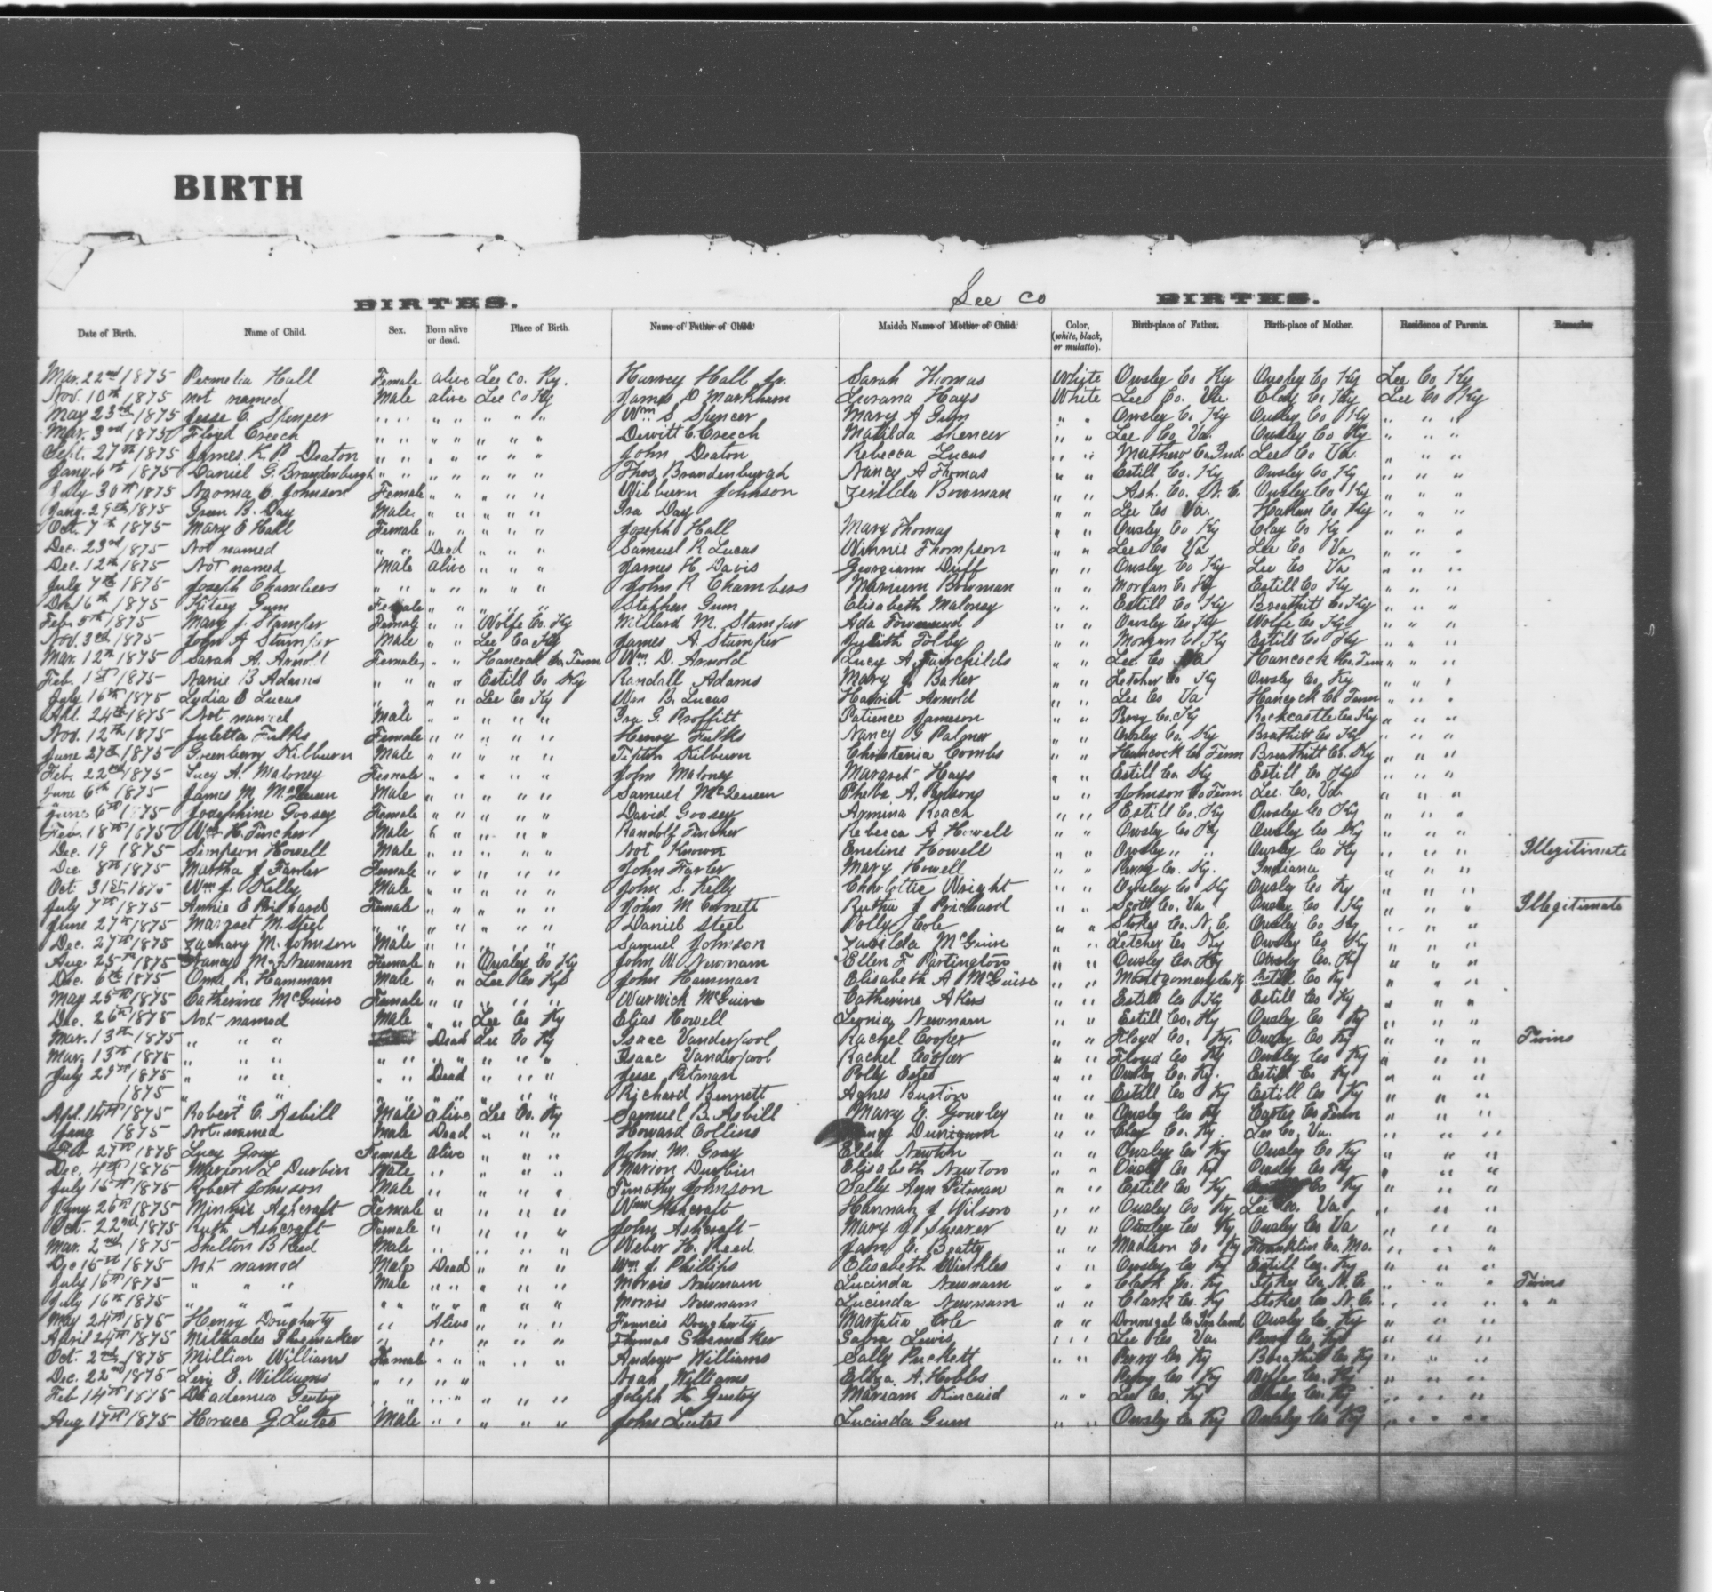 BIRTH
Lee Co
BIRTHS. BIRTHS.
Date of Birth. Name of Child. Sex. Born alive or dead. Place of Birth. Name of Father of Child. Maiden Name of Mother of Child. Color, (white, black, or mulatto). Birth-place of Father. Birth-place of Mother. Residence of Parents. Remarks
Mar. 22nd 1875 Permelia Hall Female alive Lee Co. Ky. Harvey Hall Sr. Sarah Thomas White Owsley Co Ky Owsley Co Ky Lee Co Ky
Nov. 10th 1875 not named Male alive Lee Co Ky James D Markham Lurana Hays White Lee Co. Va. Clay Co Ky Lee Co Ky
May 23rd 1875 Jesse C. Spencer " " " " " " " Wm S Spencer Mary A Gum " " Owsley Co. Ky Owsley Co Ky " " "
Mar. 3rd 1875 Floyd Creech " " " " " " " Dewitt C. Creech Matilda Spencer " " Lee Co Va. Owsley Co Ky " " "
Sept. 27th 1875 James K. P. Deaton " " " " " " " John Deaton Rebecca Lucas " " Lee Co Va. " " "
Jany. 6th 1875 Daniel G. Brandenburgh " " " " " " " Thos. Brandenburgh Nancy A Thomas " " Estill Co. Ky Owsley Co Ky " " "
July 30th 1875 Naoma C. Johnson Female " " " " " Wilburn Johnson Zerilda Bowman " " Ash. Co. N. C. Owsley Co Ky " " "
Jany. 29th 1875 Green B. Day Male " " " " " Ira Day " " Lee Co Va. Harlan Co Ky " " "
Oct. 7th 1875 Mary E Hall Female " " " " " Joseph Hall Mary Thomas " " Owsley Co Ky Clay Co Ky " " "
Dec. 23rd 1875 Not named " " Dead " " " Samuel R Lucas Winnie Thompson " " Lee Co Va Lee Co Va " " "
Dec. 12th 1875 Not named Male alive " " " James H. Davis Georgiann Duff " " Owsley Co Ky Lee Co Va " " "
July 7th 1875 Joseph Chambers " " " " " " " John R Chambers Mariam Bowman " " Morgan Co Ky Estill Co Ky " " "
Dec 6th 1875 Kitsey Gum Female " " " " " Stephen Gum Elisabeth Maloney " " Estill Co Ky Breathitt Co Ky " " "
Feb. 5th 1875 Mary J. Stamper Female " " Wolfe Co. Ky Millard M. Stamper Ada " " Owsley Co Ky Wolfe Co Ky " " "
Nov. 3rd 1875 John A Stamper Male " " Lee Co Ky James A Stamper " " Morgan Co Ky Estill Co Ky " " "
Mar. 12th 1875 Sarah A. Arnold Female " " Hancock Co. Tenn Wm D. Arnold Lucy A Fairchilds " " Lee Co Va Hancock Co. Tenn " " "
Feb. 1st 1875 Nanie B Adams " " " " Estill Co Ky Randall Adams Mary J Baker " " Letcher Co Ky Owsley Co Ky " " "
July 16th 1875 Lydia E Lucas " " " " Lee Co Ky Wm B Lucas Harriet Arnold " " Lee Co Va Hancock Co Tenn " " "
Apl. 24th 1875 Not named Male " " " " " Ira G. Proffitt Patience Jameson " " Perry Co. Ky Rockcastle Co Ky " " "
Nov. 12th 1875 Juletta Fulks Female " " " " " Henry Fulks Nancy G Palmer " " Owsley Co Ky Breathitt Co Ky " " "
June 27th 1875 Greenberry Kilburn Male " " " " " Tipton Kilburn Christenia Combs " " Hancock Co Tenn Breathitt Co. Ky " " "
Feb. 22nd 1875 Lucy A. Maloney Female " " " " " John Maloney Margret Hays " " Estill Co. Ky Estill Co Ky " " "
June 6th 1875 James M. McQueen Male " " " " " Samuel McQueen Pheba A. Parsons " " Johnson Co Tenn Lee. Co, Va. " " "
June 6th 1875 Josephine Goosey Female " " " " " David Goosey Armina Roach " " Estill Co. Ky Owsley Co Ky " " "
Feb. 18th 1875 Wm. H. Fincher Male " " " " " Randolf Fincher Rebeca A Howell " " Owsley Co Ky Owsley Co Ky " " "
Dec. 19 1875 Simpson Howell Male " " " " " Not Known Emeline Howell " " Owsley " " Owsley Co Ky " " " Illegitimate
Dec 8th 1875 Martha J. Farler Female " " " " " John Farler Mary Howell " " Perry Co. Ky. Indiana " " "
Oct 31st 1875 Wm J. Kelly Male " " " " " John S. Kelly Charlottie Wright " " Owsley Co Ky Owsley Co Ky " " "
July 7th 1875 Annie E Prichard Female " " " " " John M Cornett Rutha J Prichard " " Scott Co. Va Owsley Co Ky " " " Illegitimate
June 27th 1875 Margaet M. Steel " " " " " " " Daniel Steel Polly Cole " " Stokes Co. N. C. Owsley Co Ky " " "
Dec. 27th 1875 Zachary M. Johnson Male " " " " " Samuel Johnson Zarilda McGuin " " Letcher Co Ky Owsley Co Ky " " "
Aug 25th 1875 Nancy M. J. Newnam Female " " Owsley Co Ky John W. Newnam Ellen F Partington " " Owsley Co. Ky Owsley Co. Ky " " "
Dec. 6th 1875 Oma R. Hamman Male " " Lee Co Ky John Hamman Elisabeth A McGuire " " Montgomery Co Ky Estill Co Ky " " "
May 25th 1875 Catherine McGuire Female " " " " " Warwick McGuire Catherine Akers " " Estill Co Ky Estill Co Ky " " "
Dec. 26th 1875 Not named Male " " Lee Co Ky Elias Howell Leonia Newnam " " Estill Co. Ky Owsley Co Ky " " "
Mar. 13th 1875 " " " Dead Lee Co Ky Isaac Vanderpool Rachel Cooper " " Floyd Co. Ky. Owsley Co Ky " " " Twins
Mar. 13th 1875 " " " " " " " " " " Isaac Vanderpool Rachel Cooper " " Floyd Co Ky Owsley Co Ky " " "
July 29th 1875 " " " " " Dead " " " Jesse Pitman Polly Estes " " Owsley Co. Ky. Estill Co Ky " " "
1875 " " " " " " " " " " Richard Bennett Agnes Burton " " Estill Co Ky Estill Co Ky " " "
Apl. 14th 1875 Robert C. Asbill Male alive Lee Co. Ky Samuel B. Asbill Mary E. Gourley " " Owsley Co Ky Carter Co Tenn " " "
June 1875 Not named Male Dead " " " Howard Collins Nancy Dunigum " " Clay Co. Ky. Lee Co, Va. " " "
Feb 27th 1875 Lucy Gray Female alive " " " John M. Gray Ellen Newton " " Owsley Co Ky Owsley Co Ky " " "
Dec. 4th 1875 Marion L Durbin Male " " " " " Marion Durbin Elisabeth Newton " " Owsley Co Ky Owsley Co Ky " " "
July 15th 1875 Robert Johnson Male " " " " " Timothy Johnson Sally Ann Pitman " " Estill Co Ky Co Ky " " "
Jany 26th 1875 Minnie Ashcraft Female " " " " " Wm Ashcraft Hannah J Wilson " " Owsley Co Ky Lee Co. Va. " " "
Oct. 22nd 1875 Ruth Ashcraft Female " " " " " John Ashcraft Mary J. Shearer " " Owsley Co Ky Owsley Co Va " " "
Mar. 2nd 1875 Shelton B Reed Male " " " " " Weber H. Reed Jane C. Beatty " " Madison Co Ky Franklin Co. Mo. " " "
Dec 15th 1875 Not named Male Dead " " " Wm J. Phillips Elisabeth Winkles " " Owsley Co Ky Estill Co. Ky " " "
July 16th 1875 " " " Male " " " " " Morris Newnam Lucinda Newnam " " Clark Co. Ky Stokes Co. N. C. " " " Twins
July 16th 1875 " " " " " " " " " " Morris Newnam Lucinda Newnam " " Clark Co. Ky Stokes Co. N. C. " " " " "
May 24th 1875 Henry Dougherty " " Alive " " " Francis Dougherty Martitia Cole " " Donnegal Co Ireland Owsley Co. Ky " " "
April 24th 1875 Milkades Shumaker " " " " " " " Thomas Shumaker Sabra Lewis " " Lee Co Va. Perry Co. Ky " " "
Oct. 2nd 1875 Million Williams Female " " " " " Andrew Williams Sally Puckett " " Perry Co Ky Breathitt Co Ky " " "
Dec. 22nd 1875 Levi E. Williams " " " " " " " Noah Williams Eliza. A. Hobbs " " Perry Co Ky Co. Ky " " "
Feb 14th 1875 Diademia Gentry " " " " " " " Joseph K. Gentry Mariam Kincaid " " Lee Co, Ky Owsley Co. Ky " " "
Aug 17th 1875 Horace G. Lutes Male " " " " " John Lutes Lucinda Gum " " Owsley Co Ky Owsley Co Ky " " "